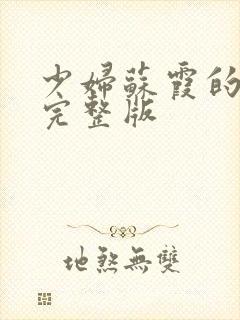 少婦蘇霞的
完整版
地煞無雙